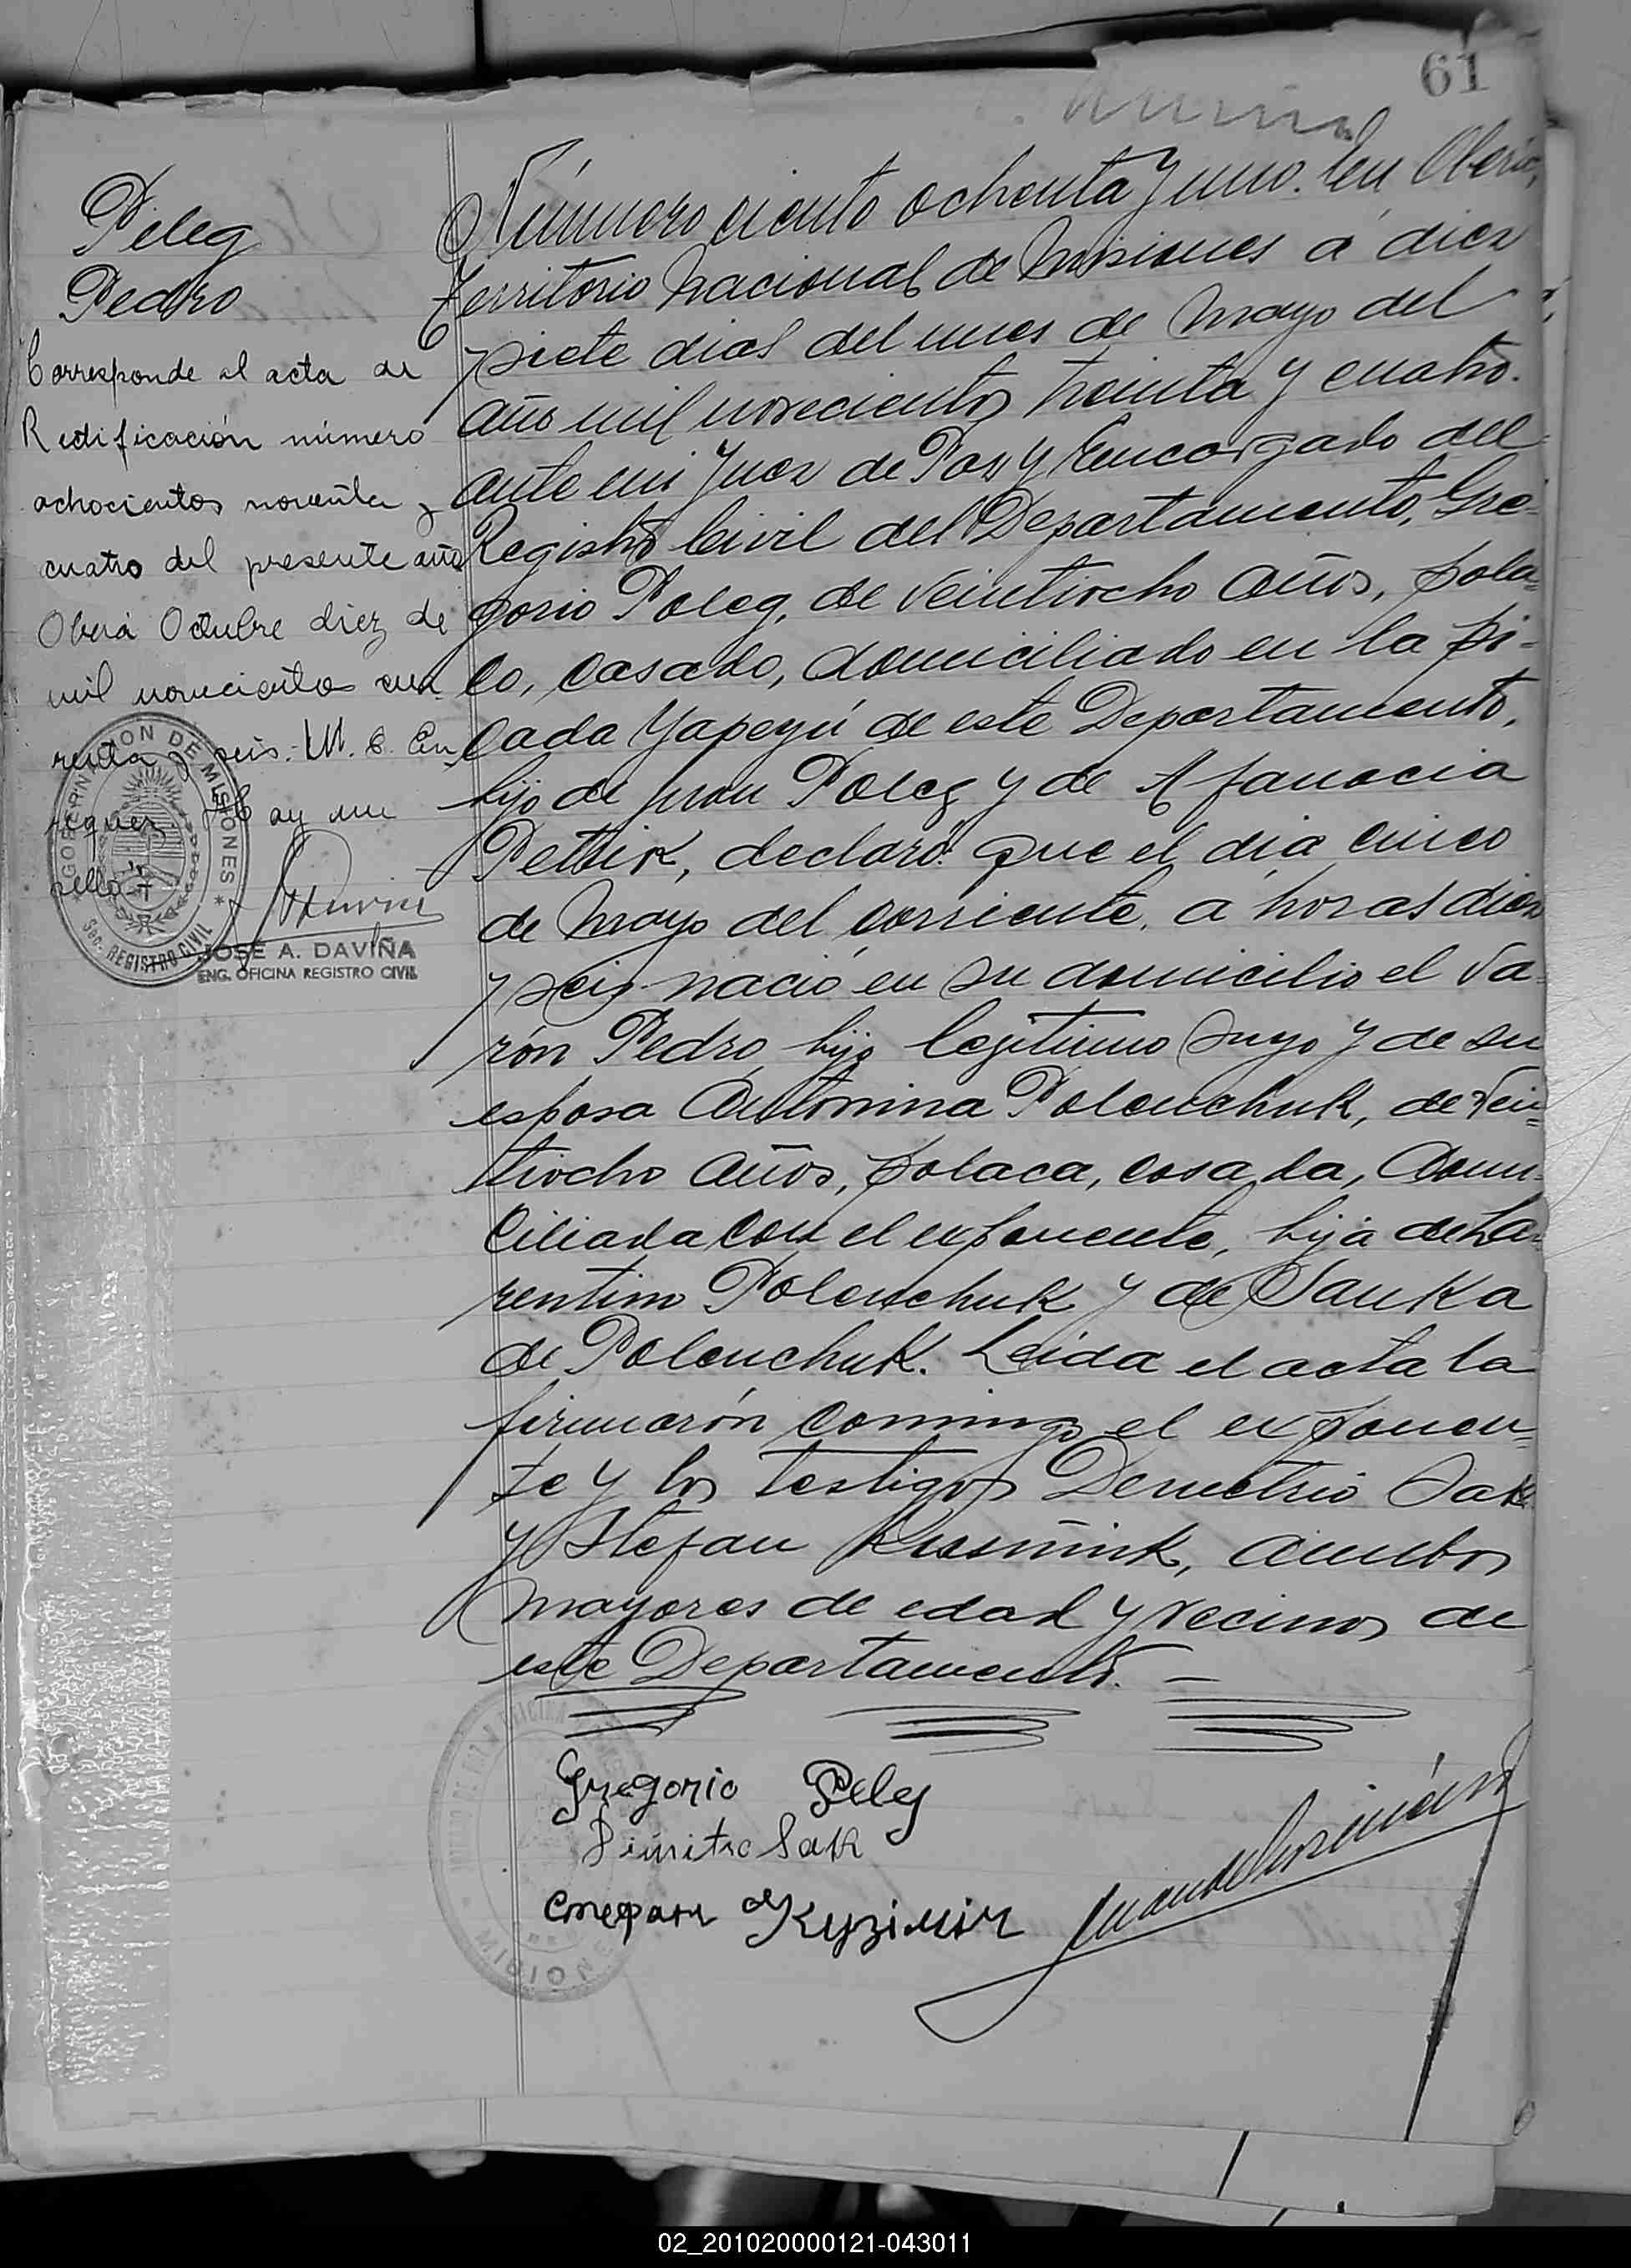 61
Peleg
Pedro
Corresponde al acta de
Rectificación número
ochocientos noventa y
cuatro del presente año
Oberá Octubre diez de
mil novecientos cua
renta y seis. M. E. En
riquez. Hay un
sello
GOBERNACION DE MISIONES
Sec. REGISTRO CIVIL
JOSE A. DAVIÑA
ENG. OFICINA REGISTRO CIVIL
Número ciento ochenta y uno. En Oberá,
Territorio Nacional de Misiones a diez
y siete dias del mes de Mayo del
año mil novecientos treinta y cuatro.
ante mi Juez de Paz y Encargado del
Registro Civil del Departamento, Gre-
gorio Poleg, de veintiocho años, pola=
co, casado, domiciliado en la pi-
cada Yapeyú de este Departamento,
hijo de Juan Poleg y de Afanacia
Petsik, declaró: que el dia cinco
de Mayo del corriente, a horas diez
y seis nació en su domicilio el va-
rón Pedro, hijo legitimo suyo y de su
esposa Antonina Polenchuk, de vein=
tiocho años, polaca, casada, domi-
ciliada con el exponente, hija de La-
rentino Polenchuk y de Sauka
de Polenchuk. Leida el acta la
firmarón conmigo el exponen=
te y los testigos Demetrio Sak
y Stefan Kusmink, ambos
mayores de edad y vecinos de
este Departamento. —
Gregorio Peleg
Dimitro Sak
Стефан Кузімін
MISIONES
02_201020000121-043011